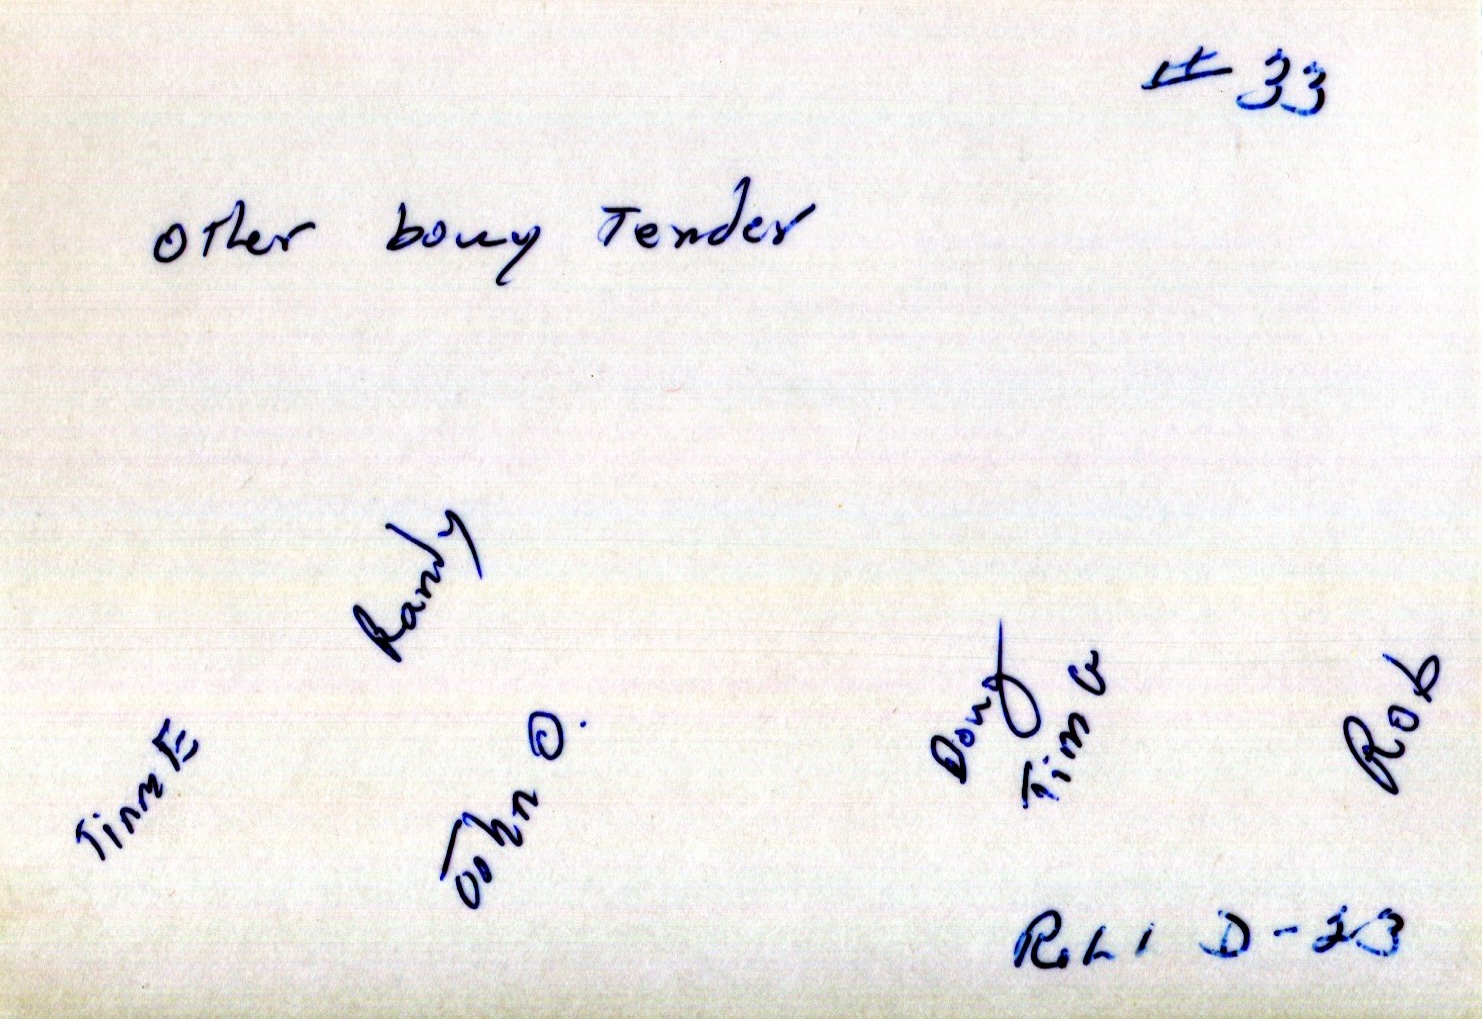 # 33
other bouy Tender
Randy
Doug
Tim G
Rob
Tim E
John O.
Roll D-33